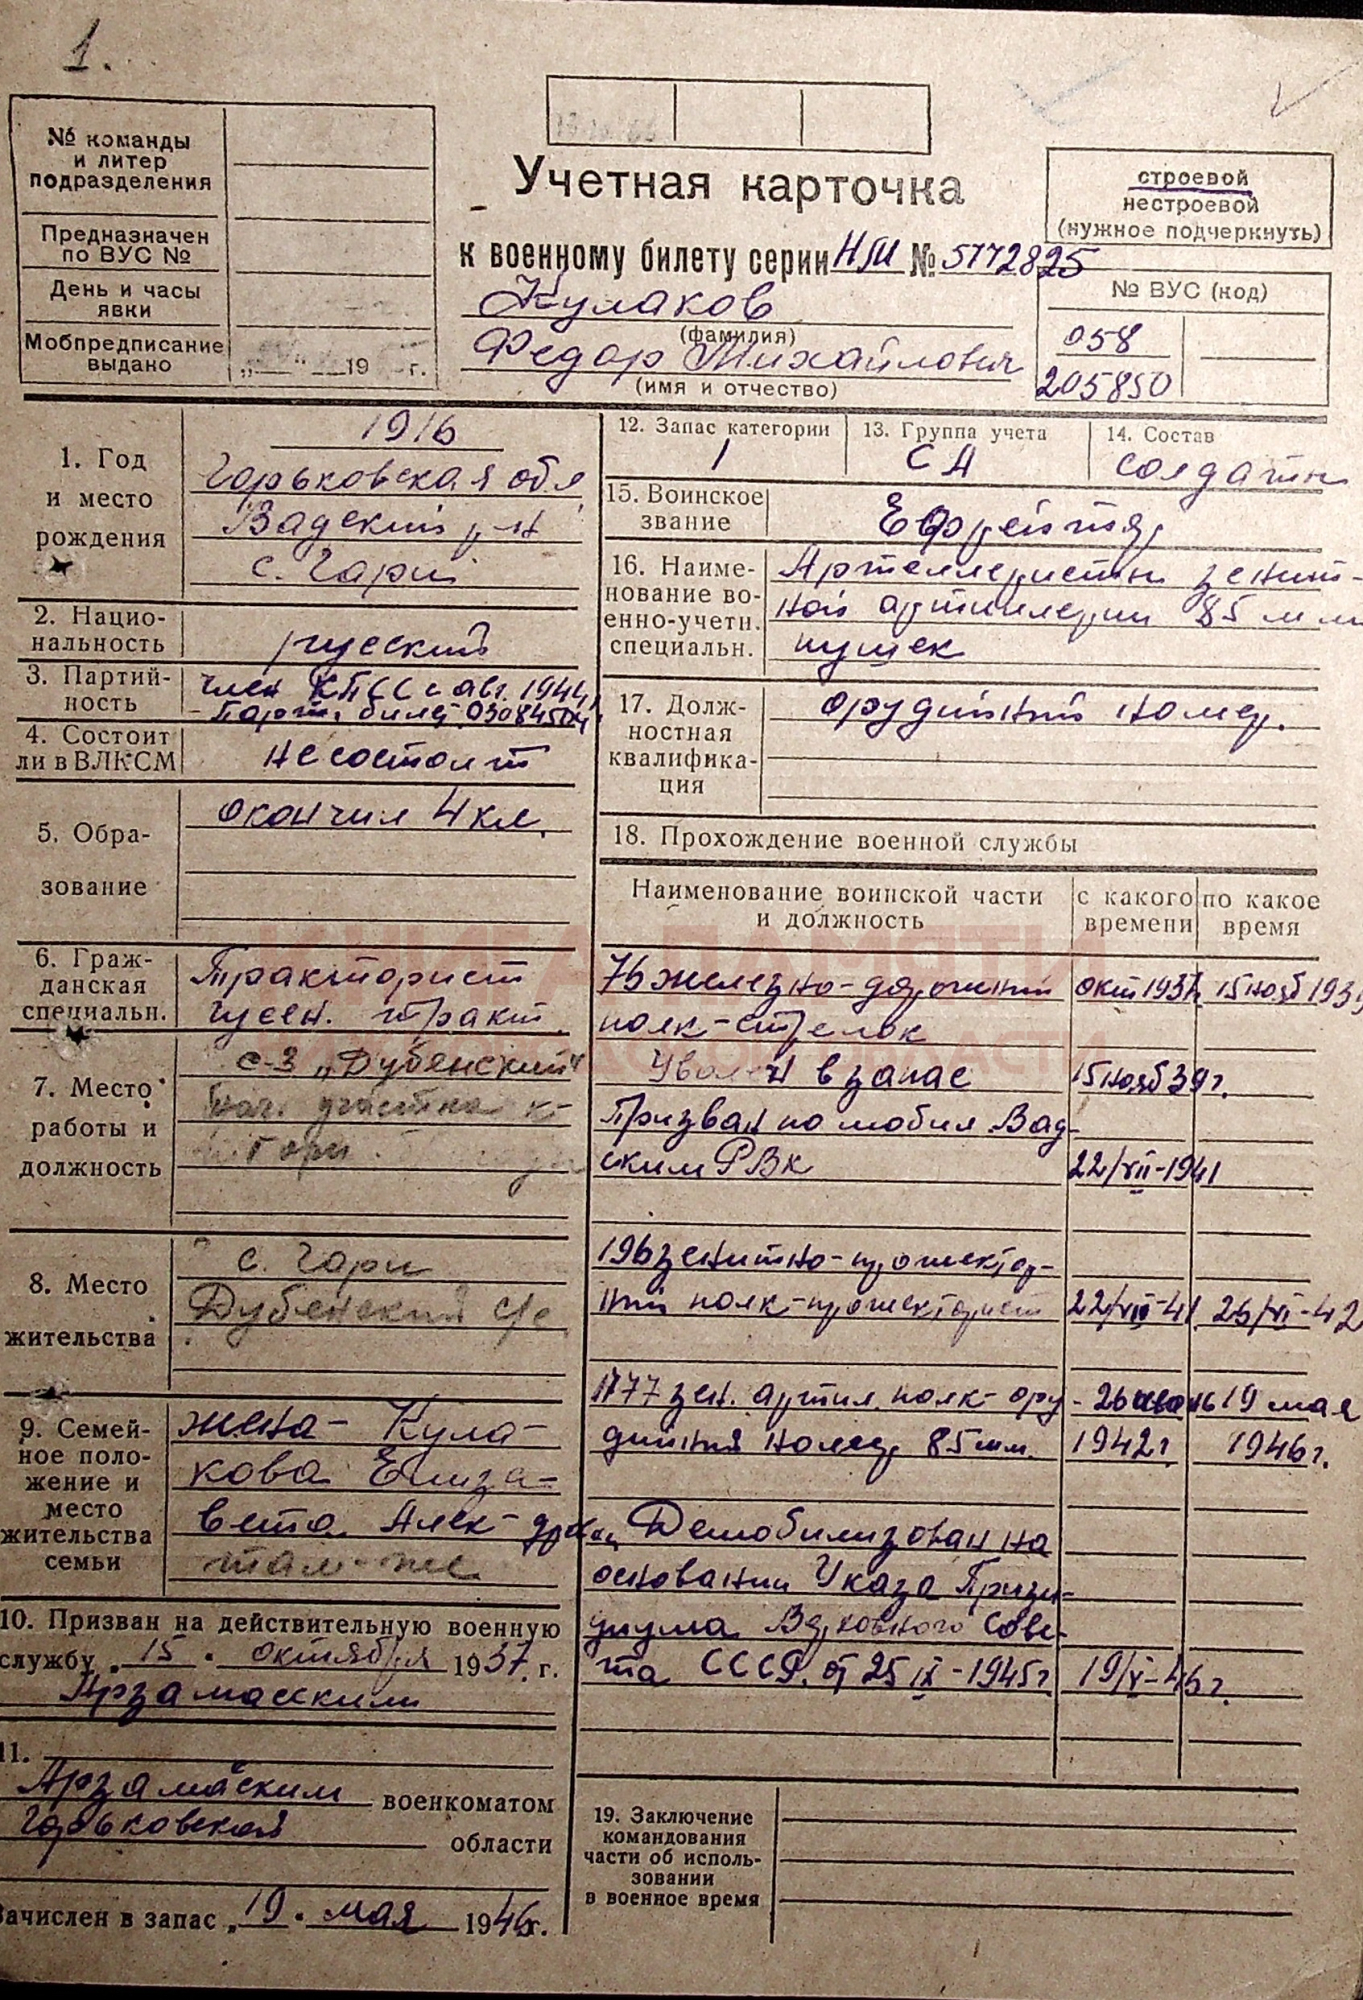 1.
№ команды
и литер
подразделения
Предназначен
по ВУС №
День и часы
явки
Мобпредписание
выдано
„ “ 19 г.
Учетная карточка
к военному билету серии НП № 5772825
Кулаков
(фамилия)
Федор Михайлович
(имя и отчество)
строевой
нестроевой
(нужное подчеркнуть)
№ ВУС (код)
058
205850
1. Год
и место
рождения
1916
Горьковская обл
Вадский р-н
с. Гари
2. Нацио-
нальность
русский
3. Партий-
ность
член КПСС с авг. 1944
Парт. билет
4. Состоит
ли в ВЛКСМ
не состоит
5. Обра-
зование
окончил 4 кл.
6. Граж-
данская
специальн.
Тракторист
гусен. тракт.
7. Место
работы и
должность
с-з „Дубенский“
8. Место
жительства
с. Гари
Дубенский с/с
9. Семей-
ное поло-
жение и
место
жительства
семьи
жена - Кула-
кова Елиза-
вета Алек-дров.
там-же
10. Призван на действительную военную
службу „15“ октября 1937 г.
Арзамасским
11.
Арзамаским военкоматом
Горьковской области
Зачислен в запас „19“ мая 1946 г.
12. Запас категории
1
13. Группа учета
СА
14. Состав
солдаты
15. Воинское
звание
Ефрейтор
16. Наиме-
нование во-
енно-учетн.
специальн.
Артеллеристы зенит-
ной артиллерии 85 мм
пушек
17. Долж-
ностная
квалифика-
ция
орудийный номер.
18. Прохождение военной службы
Наименование воинской части
и должность
с какого
времени
по какое
время
76 железно-дорожный окт 1937г. 15 нояб 193
полк-стрелок
Уволен в запас 15 нояб 39 г.
Призван по мобил Вад-
ским РВК 22/VII-1941
196 зенитно-прожектор-
ный полк-прожекторист 22/VII-41 26/VI-42
1777 зен. артил. полк-ору- 26 июнь 19 мая
дийный номер 85 мм. 1942 г. 1946 г.
Демобилизован на
основании Указа Прези-
диума Верховного Сове-
та СССР. от 25 IX-1945 г. 19/V-46 г.
19. Заключение
командования
части об исполь-
зовании
в военное время
КНИГА ПАМЯТИ
НИЖЕГОРОДСКОЙ ОБЛАСТИ